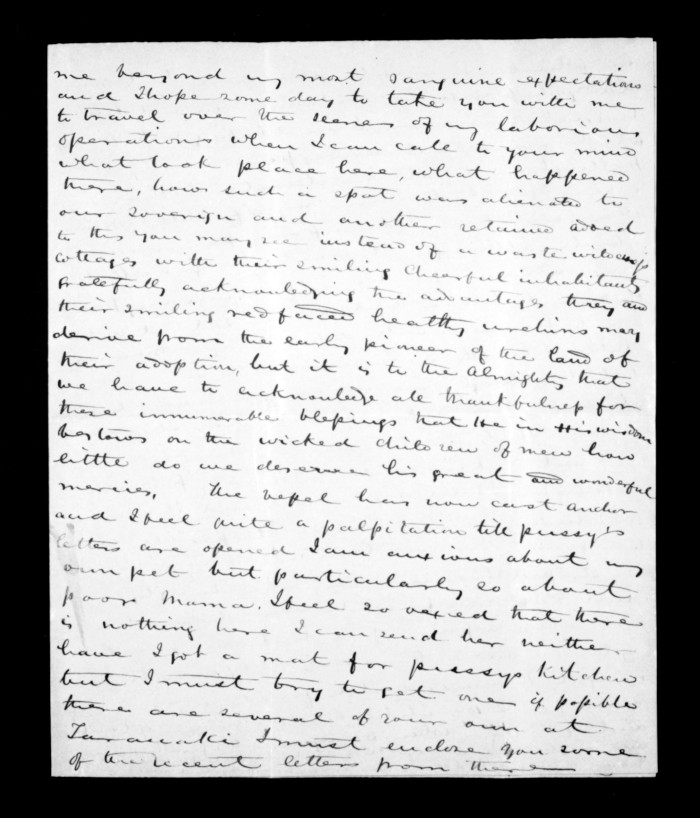 me beyond my most sanguine expectations
and I hope some day to take you with me
to travel over the scenes of my laborious
operations when I can call to your mind
what took place here, what happened
there, how such a spot was alienated to
our sovereign and another retained added
to this you may see instead of a waste wilderness
cottages with their smiling cheerful inhabitants
gratefully acknowledging the advantages they and
their smiling red faced healthy urchins may
derive from the early pioneer of the land of
their adoption, but it is to the Almighty that
we have to acknowledge all thankfulness for
these innumerable blessings that He in His wisdom
bestows on the wicked children of men how
little do we deserve his great and wonderful
mercies. The vessel has now cast anchor
and I feel quite a palpitation till pussy's
letters are opened I am anxious about my
own pet but particularly so about
poor Mama. I feel so vexed that there
is nothing here I can send her neither
have I got a mat for pussys Kitchen
but I must try to get one if possible
there are several of your own at
Taranaki I must enclose you some
of the recent letters from there